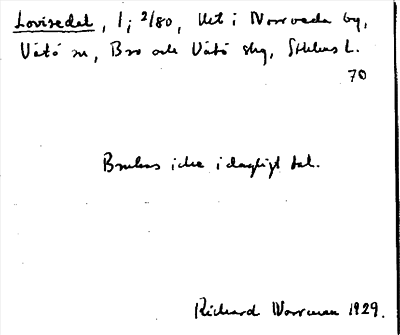 Lovisedal, 1; 2/80, Uet i Norrveda by,
Vätö sn, Bro och Vätö skg, Sthlms L.
70
Brukas icke i dagligt tal.
Richard Norrman 1929.